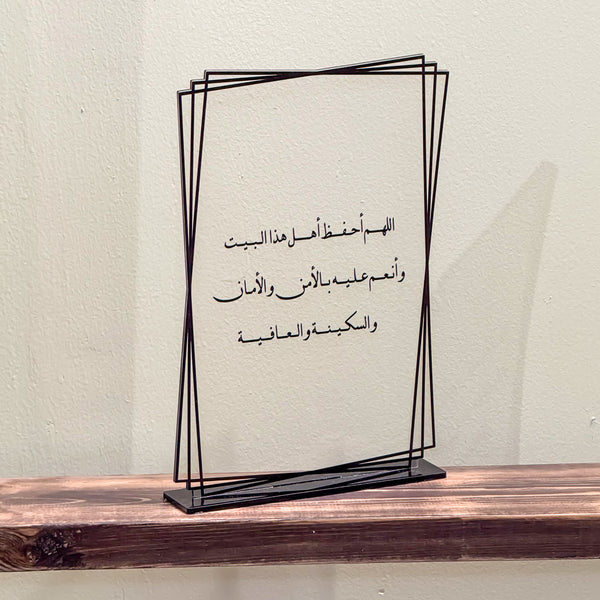 اللهم أحفظ أهل هذا البيت
وأنعم عليه بالأمن والأمان
والسكينة والعافية